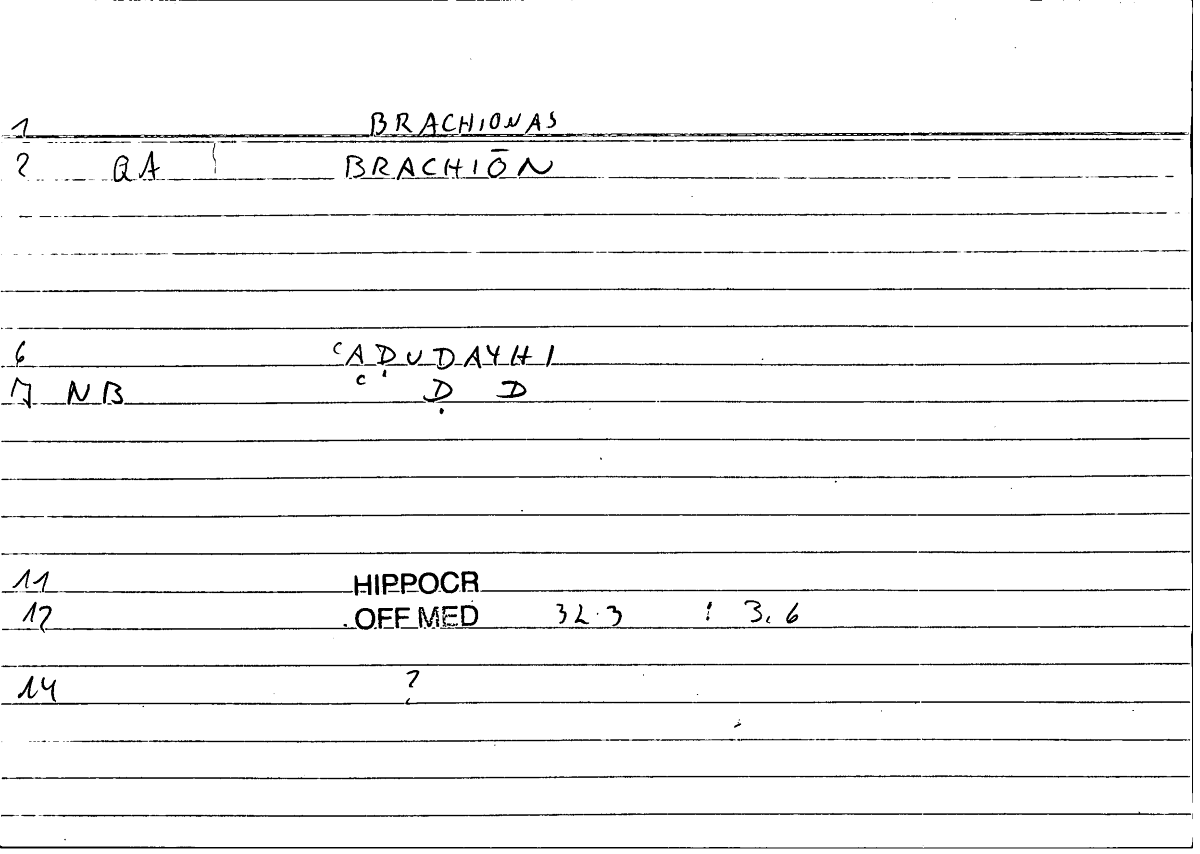 1 BRACHIONAS
2 QA BRACHIŌN
6 ʿAḌUDAYHI
7 NB ʿ Ḍ D
11 HIPPOCR
12 OFF MED 32.3 : 3.6
14 ?